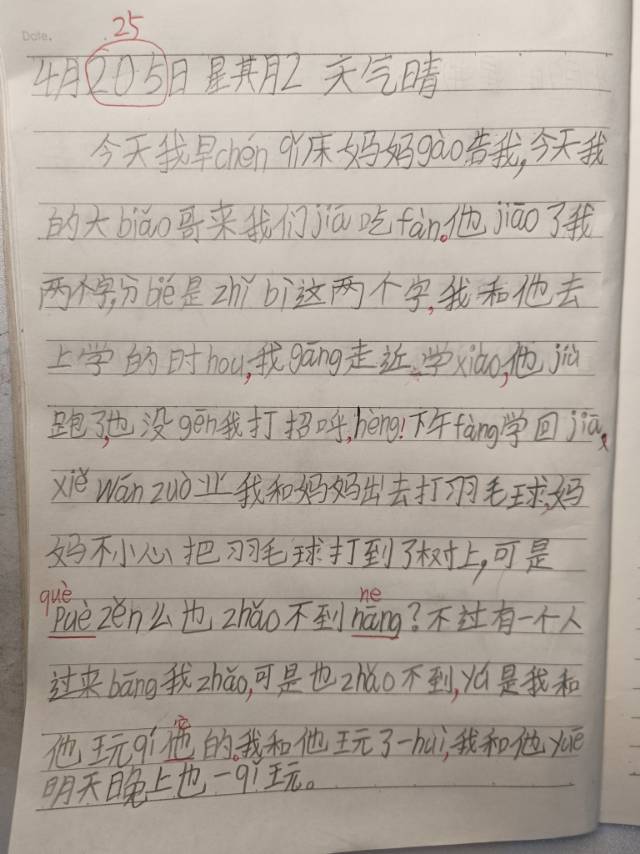 Date.
.25
4月205日 星其月2 天气晴
今天我早chén qǐ床妈妈gào告我,今天我
的大biǎo哥来我们jiā吃fàn。他jiāo了我
两个字,分bié是zhǐ bǐ这两个字,我和他去
上学的时hou,我gāng走近学xiào,他jiù
跑了,也没gēn我打招呼,hèng!下午fàng学回jiā,
xiě wán zuò业我和妈妈出去打羽毛球,妈
妈不小心把羽毛球打到了树上,可是
què ne
Puè zěn么也zhǎo不到nāng?不过有一个人
过来bāng我zhǎo,可是也zhǎo不到,yú是我和
他玩qí他的。我和他玩了一huì,我和他yuē
明天晚上也一qǐ玩。